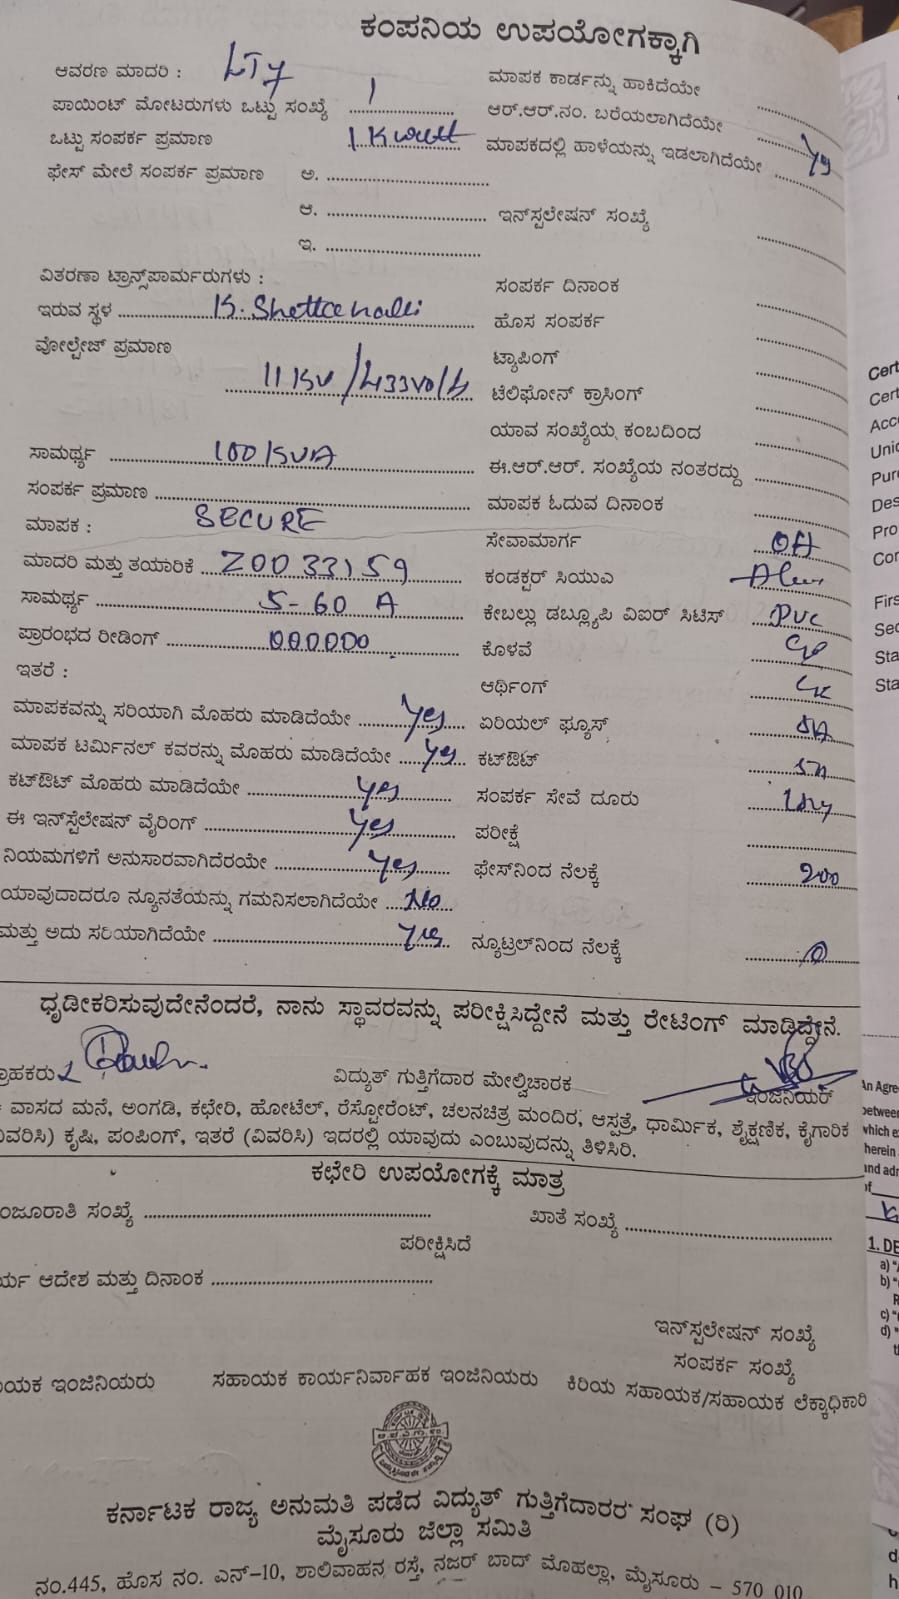 ಕಂಪನಿಯ ಉಪಯೋಗಕ್ಕಾಗಿ
ಆವರಣ ಮಾದರಿ : LT7 ಮಾಪಕ ಕಾರ್ಡನ್ನು ಹಾಕಿದೆಯೇ
ಪಾಯಿಂಟ್ ಮೋಟರುಗಳು ಒಟ್ಟು ಸಂಖ್ಯೆ 1 ಆರ್.ಆರ್.ನಂ. ಬರೆಯಲಾಗಿದೆಯೇ
ಒಟ್ಟು ಸಂಪರ್ಕ ಪ್ರಮಾಣ 1 Kwatt ಮಾಪಕದಲ್ಲಿ ಹಾಳೆಯನ್ನು ಇಡಲಾಗಿದೆಯೇ
ಫೇಸ್ ಮೇಲೆ ಸಂಪರ್ಕ ಪ್ರಮಾಣ ಅ.
ಆ. ಇನ್‌ಸ್ಟಲೇಷನ್ ಸಂಖ್ಯೆ
ಇ.
ವಿತರಣಾ ಟ್ರಾನ್ಸ್‌ಫಾರ್ಮರುಗಳು : ಸಂಪರ್ಕ ದಿನಾಂಕ
ಇರುವ ಸ್ಥಳ ಹೊಸ ಸಂಪರ್ಕ
ವೋಲ್ಟೇಜ್ ಪ್ರಮಾಣ ಟ್ಯಾಪಿಂಗ್
11KV/433volts ಟೆಲಿಫೋನ್ ಕ್ರಾಸಿಂಗ್
ಯಾವ ಸಂಖ್ಯೆಯ ಕಂಬದಿಂದ
ಸಾಮರ್ಥ್ಯ 100KVA ಈ.ಆರ್.ಆರ್. ಸಂಖ್ಯೆಯ ನಂತರದ್ದು
ಸಂಪರ್ಕ ಪ್ರಮಾಣ ಮಾಪಕ ಓದುವ ದಿನಾಂಕ
ಮಾಪಕ : SECURE ಸೇವಾಮಾರ್ಗ OH
ಮಾದರಿ ಮತ್ತು ತಯಾರಿಕೆ Z0033159 ಕಂಡಕ್ಟರ್ ಸಿಯುಎ
ಸಾಮರ್ಥ್ಯ 5-60 A ಕೇಬಲ್ಲು ಡಬ್ಲ್ಯೂಪಿ ವಿಐಆರ್ ಸಿಟಿಸ್ PVC
ಪ್ರಾರಂಭದ ರೀಡಿಂಗ್ 000000 ಕೊಳವೆ
ಇತರೆ : ಆರ್ಥಿಂಗ್
ಮಾಪಕವನ್ನು ಸರಿಯಾಗಿ ಮೊಹರು ಮಾಡಿದೆಯೇ Yes ಏರಿಯಲ್ ಫ್ಯೂಸ್ 5A
ಮಾಪಕ ಟರ್ಮಿನಲ್ ಕವರನ್ನು ಮೊಹರು ಮಾಡಿದೆಯೇ Yes ಕಟ್‌ಔಟ್
ಕಟ್‌ಔಟ್ ಮೊಹರು ಮಾಡಿದೆಯೇ Yes ಸಂಪರ್ಕ ಸೇವೆ ದೂರು
ಈ ಇನ್‌ಸ್ಟೆಲೇಷನ್ ವೈರಿಂಗ್ Yes ಪರೀಕ್ಷೆ
ನಿಯಮಗಳಿಗೆ ಅನುಸಾರವಾಗಿದೆರಯೇ Yes ಫೇಸ್‌ನಿಂದ ನೆಲಕ್ಕೆ 200
ಯಾವುದಾದರೂ ನ್ಯೂನತೆಯನ್ನು ಗಮನಿಸಲಾಗಿದೆಯೇ No
ಮತ್ತು ಅದು ಸರಿಯಾಗಿದೆಯೇ Yes ನ್ಯೂಟ್ರಲ್‌ನಿಂದ ನೆಲಕ್ಕೆ 0
ಧೃಡೀಕರಿಸುವುದೇನೆಂದರೆ, ನಾನು ಸ್ಥಾವರವನ್ನು ಪರೀಕ್ಷಿಸಿದ್ದೇನೆ ಮತ್ತು ರೇಟಿಂಗ್ ಮಾಡಿದ್ದೇನೆ.
ಗ್ರಾಹಕರು ವಿದ್ಯುತ್ ಗುತ್ತಿಗೆದಾರ ಮೇಲ್ವಿಚಾರಕ ಇಂಜಿನಿಯರ್
ವಾಸದ ಮನೆ, ಅಂಗಡಿ, ಕಛೇರಿ, ಹೋಟೆಲ್, ರೆಸ್ಟೋರೆಂಟ್, ಚಲನಚಿತ್ರ ಮಂದಿರ, ಆಸ್ಪತ್ರೆ, ಧಾರ್ಮಿಕ, ಶೈಕ್ಷಣಿಕ, ಕೈಗಾರಿಕ
ವಿವರಿಸಿ) ಕೃಷಿ, ಪಂಪಿಂಗ್, ಇತರೆ (ವಿವರಿಸಿ) ಇದರಲ್ಲಿ ಯಾವುದು ಎಂಬುವುದನ್ನು ತಿಳಿಸಿರಿ.
ಕಛೇರಿ ಉಪಯೋಗಕ್ಕೆ ಮಾತ್ರ
ಮಂಜೂರಾತಿ ಸಂಖ್ಯೆ ಖಾತೆ ಸಂಖ್ಯೆ
ಪರೀಕ್ಷಿಸಿದೆ
ಆದೇಶ ಮತ್ತು ದಿನಾಂಕ
ಇನ್‌ಸ್ಟಲೇಷನ್ ಸಂಖ್ಯೆ
ಸಂಪರ್ಕ ಸಂಖ್ಯೆ
ಇಂಜಿನಿಯರು ಸಹಾಯಕ ಕಾರ್ಯನಿರ್ವಾಹಕ ಇಂಜಿನಿಯರು ಕಿರಿಯ ಸಹಾಯಕ/ಸಹಾಯಕ ಲೆಕ್ಕಾಧಿಕಾರಿ
ಕರ್ನಾಟಕ ರಾಜ್ಯ ಅನುಮತಿ ಪಡೆದ ವಿದ್ಯುತ್ ಗುತ್ತಿಗೆದಾರರ ಸಂಘ (ರಿ)
ಮೈಸೂರು ಜಿಲ್ಲಾ ಸಮಿತಿ
ನಂ.445, ಹೊಸ ನಂ. ಎನ್-10, ಶಾಲಿವಾಹನ ರಸ್ತೆ, ನಜರ್ ಬಾದ್ ಮೊಹಲ್ಲಾ, ಮೈಸೂರು – 570 010